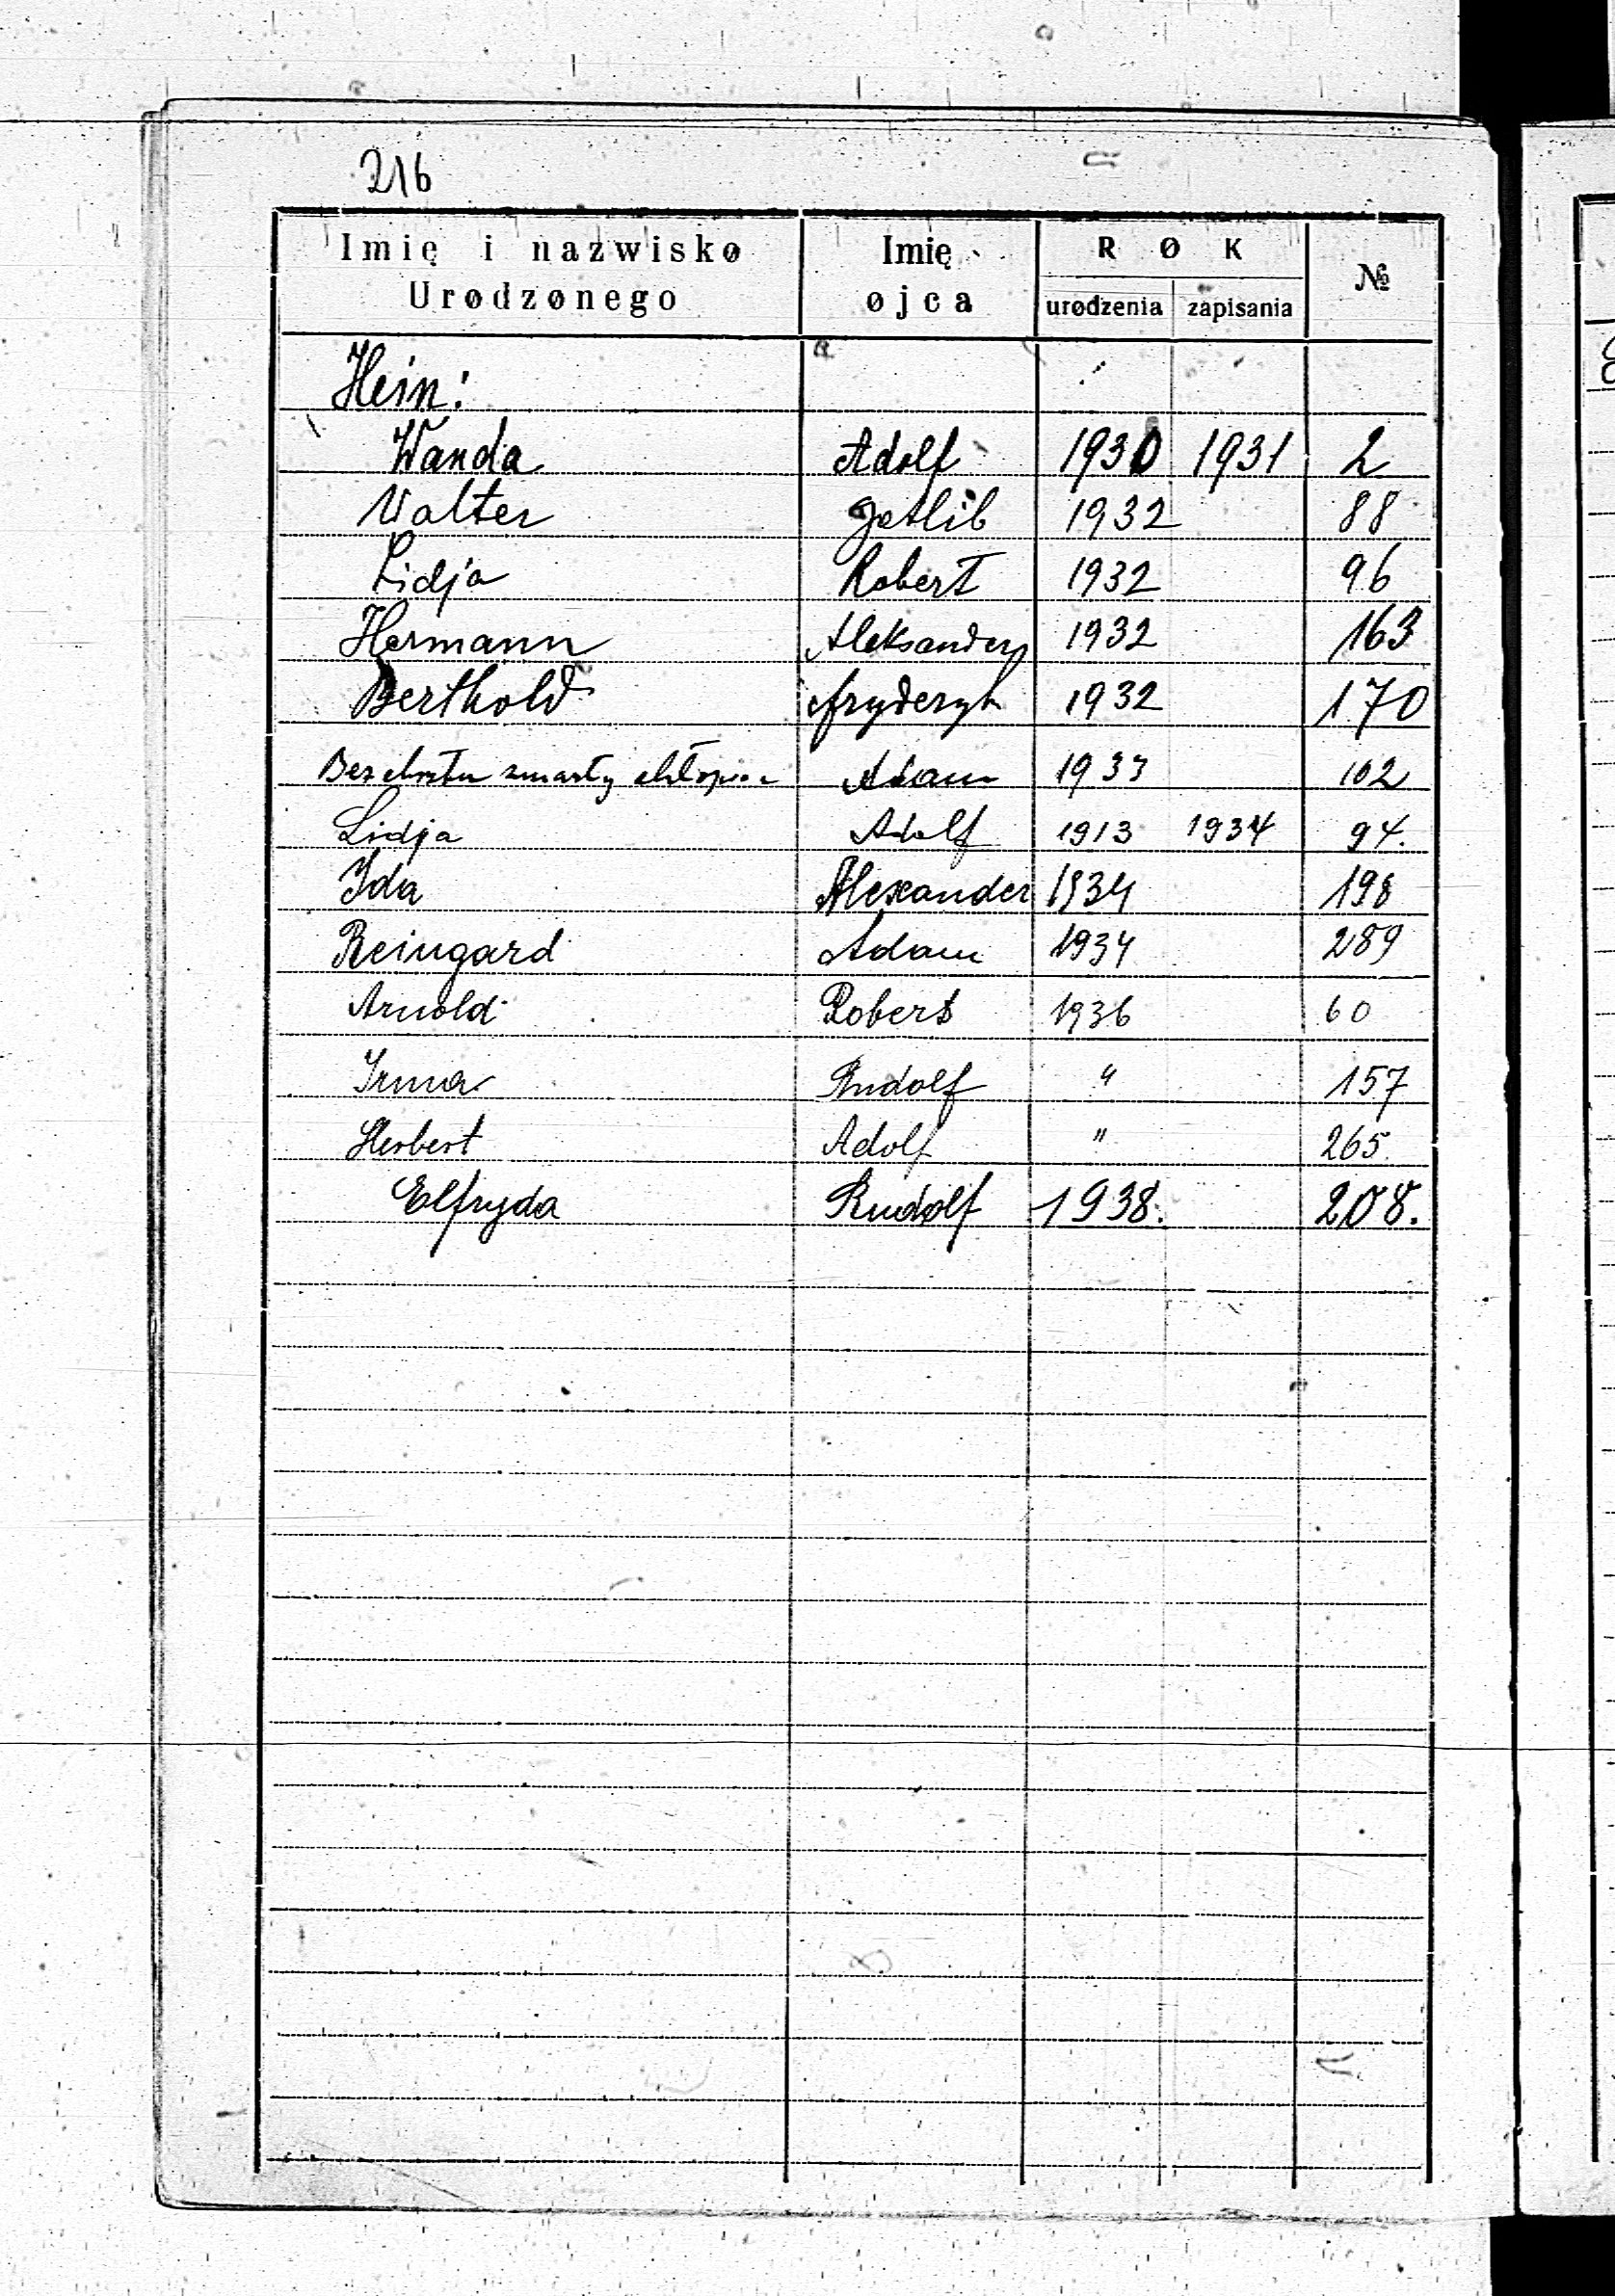 216
Imię i nazwisko Urodzonego Imię ojca ROK urodzenia zapisania №
Hein:
Wanda Adolf 1930 1931 2
Walter Gotlib 1932 88
Lidja Robert 1932 96
Hermann Aleksander 1932 163
Berthold Fryderyk 1932 170
Bez chrztu zmarły chłopiec Adam 1933 102
Lidja Adolf 1913 1934 94.
Ida Alexander 1934 198
Reingard Adam 1934 289
Arnold Robert 1936 60
Irma Rudolf " 157
Herbert Adolf " 265.
Elfryda Rudolf 1938. 208.